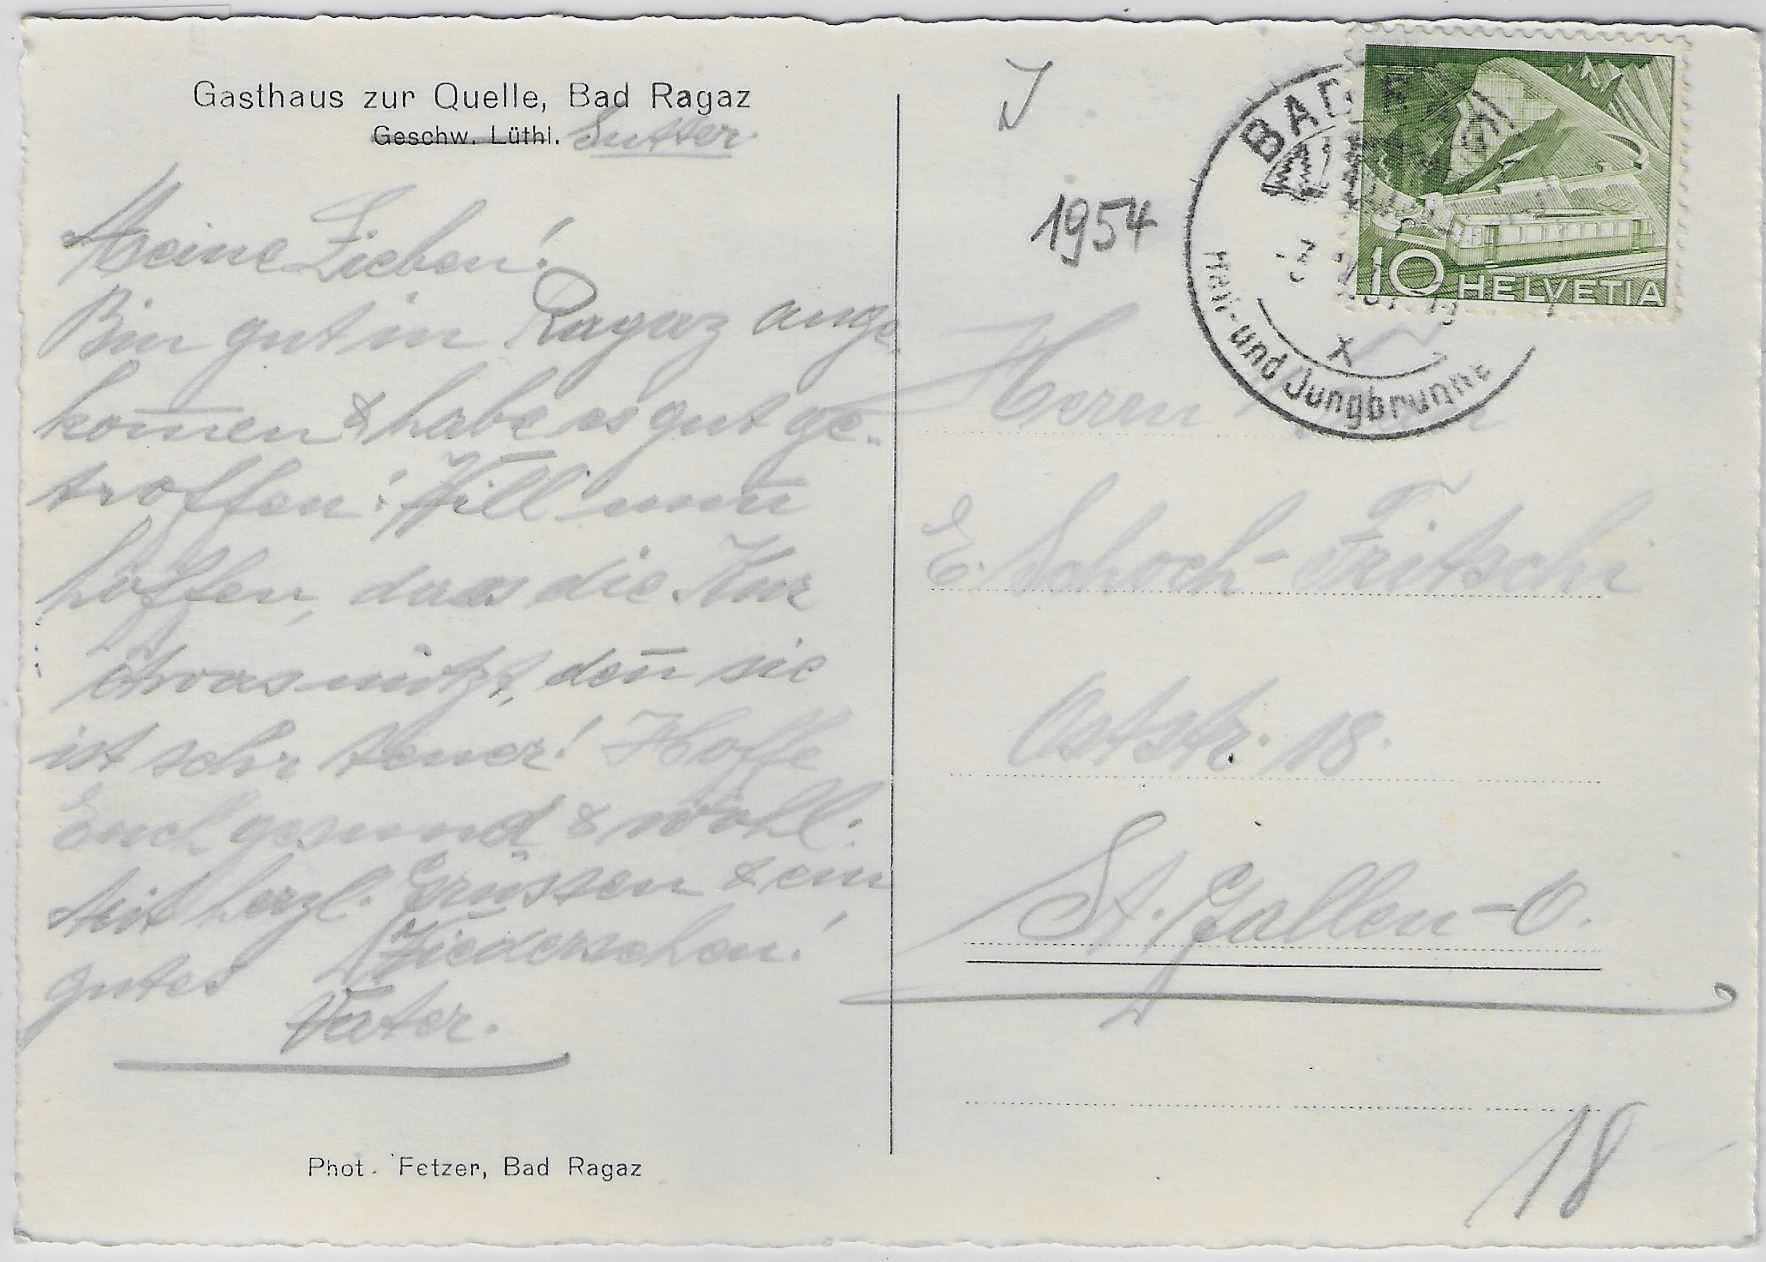 Gasthaus zur Quelle, Bad Ragaz
Geschw. Lüthi. Sutter.
Meine Lieben!
Bin gut in Ragaz ange
kom̅en & habe es gut ge-
troffen! Will nun
hoffen, dass die Kur
etwas nützt, den̅ sie
ist sehr teuer! Hoffe
Euch gesund & wohl.
Mit herzl. Grüssen & ein
gutes Wiedersehen!
Vater.
Phot. Fetzer, Bad Ragaz
J
1954
BAD RAGAZ
Heil- und Jungbrunnen
X
10 HELVETIA
Herrn
E. Schoch-Fritschi
Oststr. 18.
St. Gallen-O.
18